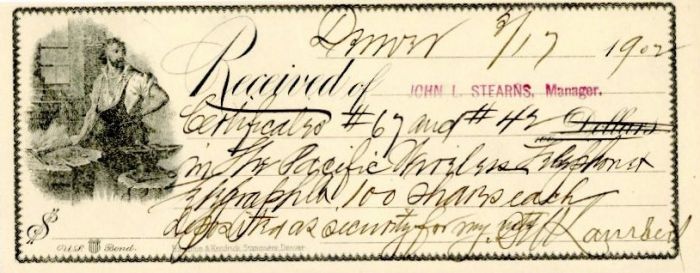 Denver 3/17 1902
Received of JOHN L. STEARNS, Manager.
Certificates #67 and #42 Dollars
in The Pacific Wireless Telephone &
Telegraph 100 shares each
deposited as security for my
$
U.S. Bond. & Kendrick, Stationers, Denver